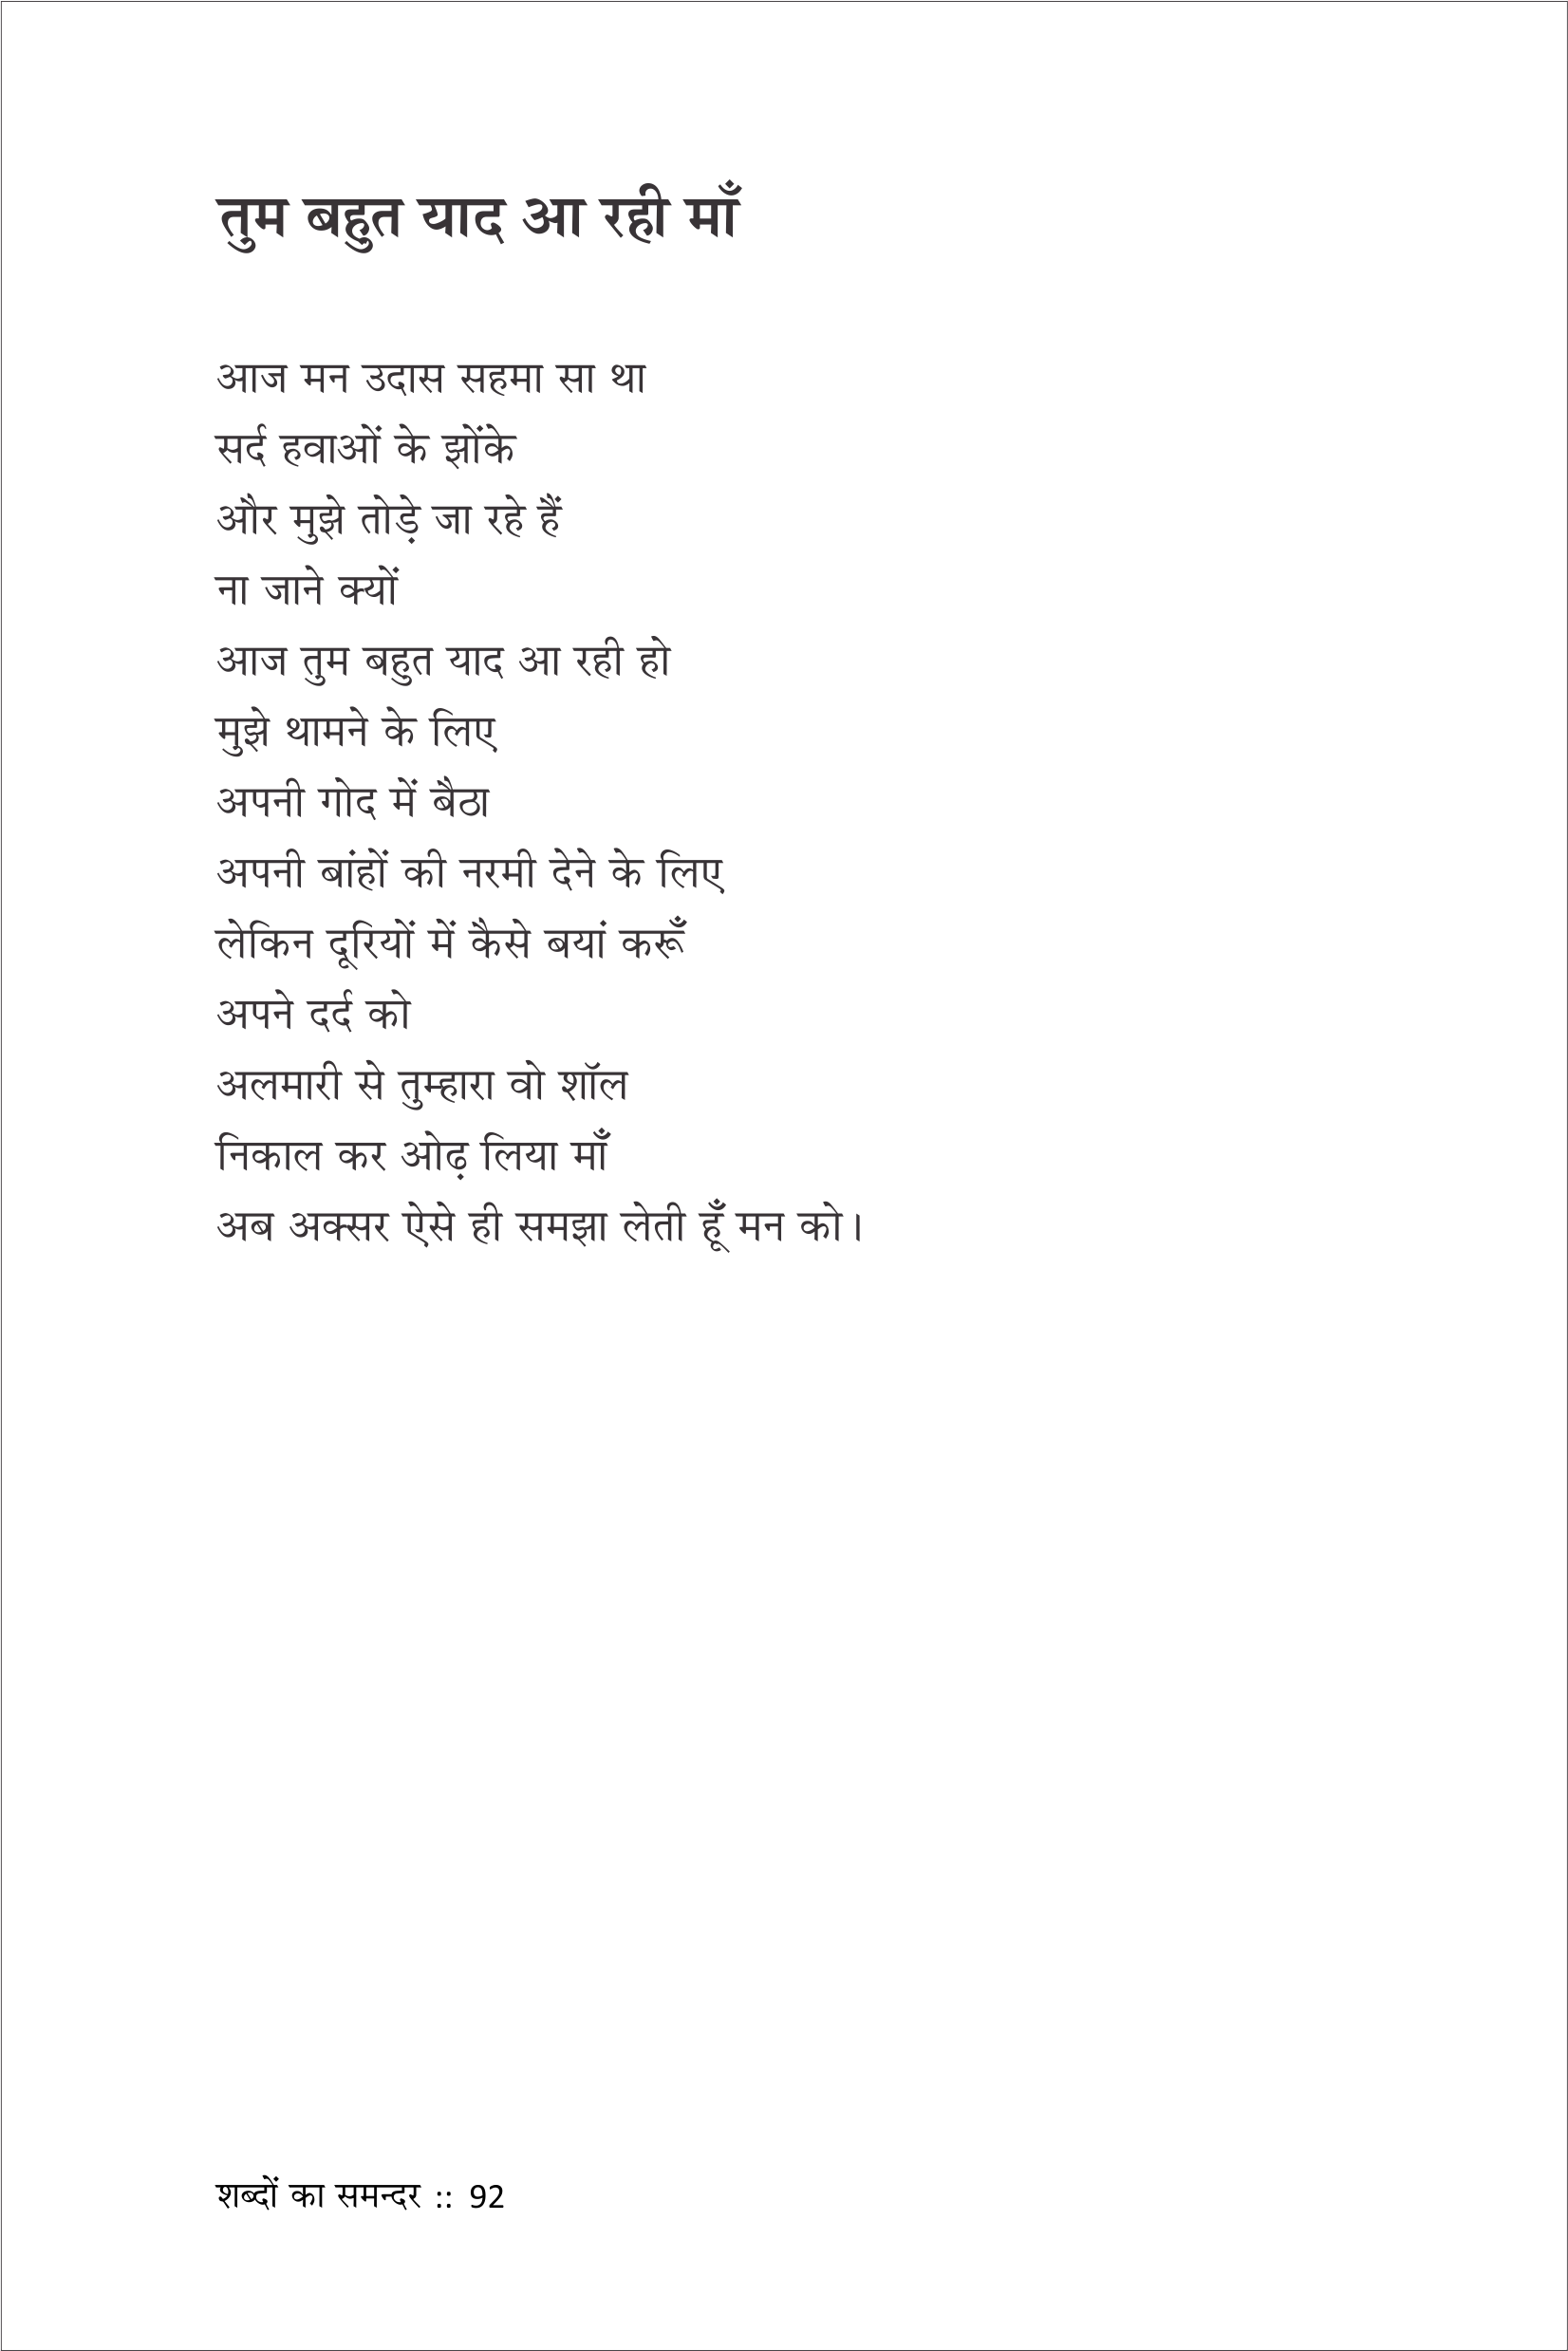 तुम बहुत याद आ रही माँ
आज मन उदास सहमा सा था
सर्द हवाओं के झोंके
और मुझे तोड़े जा रहे हैं
ना जाने क्यों
आज तुम बहुत याद आ रही हो
मुझे थामने के लिए
अपनी गोद में बैठा
अपनी बांहों की नरमी देने के लिए
लेकिन दूरियों में कैसे बयां करूँ
अपने दर्द को
अलमारी से तुम्हारा वो शॉल
निकाल कर ओढ़ लिया माँ
अब अक्सर ऐसे ही समझा लेती हूँ मन को।
शब्दों का समन्दर :: 92